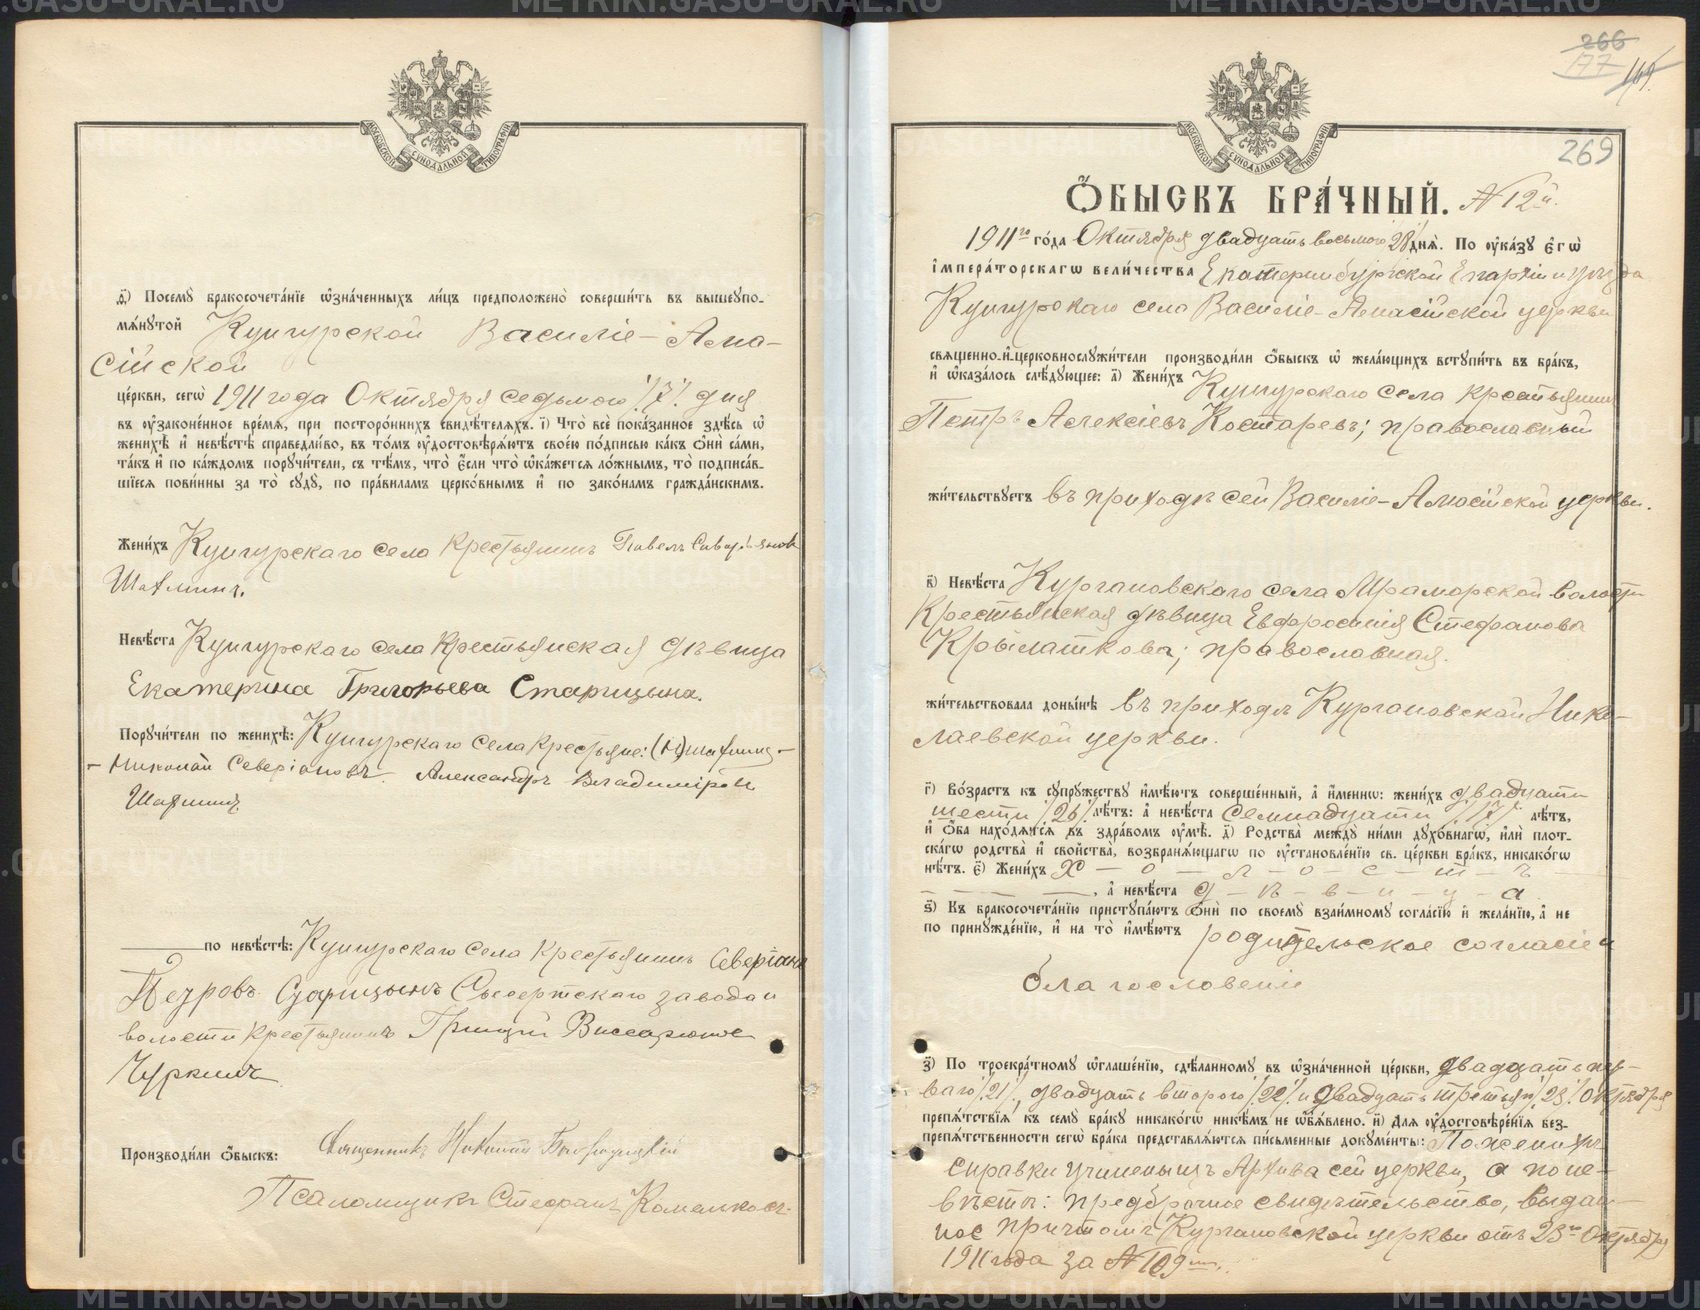 МОСКОВСКОЙ СѴНОДАЛЬНОЙ ТИПОГРАФІИ
д҃) Посемꙋ̀ бракосочета́нїе ѡ҆зна́ченныхъ ли́цъ предположено̀ соверши́ть въ вышеꙋпо-
мѧ́нꙋтой Кунгурской Василіе-Ама-
сійской
це́ркви, сегѡ̀ 1911 года Октября седьмого /7/ дня
въ ᲂу҆зако́ненное вре́мѧ, при посторо́ннихъ свидѣ́телѧхъ. і҃) Что̀ всѐ пока́занное здѣ́сь ѡ҆
женихѣ̀ и҆ невѣ́стѣ справедли́во, въ то́мъ ᲂу҆достовѣрѧ́ютъ свое́ю по́дписью ка́къ ѻ҆нѝ са́ми,
та́къ и҆ по ка́ждомъ порꙋчи́тели, съ тѣ́мъ, что̀ є҆́сли что̀ ѡ҆ка́жетсѧ ло́жнымъ, то̀ подписа́в-
шїесѧ пови́нны за то̀ сꙋдꙋ̀, по пра́виламъ церко́внымъ и҆ по зако́намъ гражда́нскимъ.
Жени́хъ Кунгурскаго села крестьянинъ Павелъ Северьяновъ
Шахминъ.
Невѣ́ста Кунгурскаго села крестьянская дѣвица
Екатерина Григорьева Старицына.
Порꙋчи́тели по женихѣ̀: Кунгурскаго села крестьяне: (Н) Шахминъ
Николай Северіановъ Александръ Владиміровъ
Шахминъ
по невѣ́стѣ: Кунгурскаго села крестьянинъ Северіанъ
Петровъ Старицынъ Сысертскаго завода и
волости крестьянинъ Виссаріоновъ
Чуркинъ
Производи́ли ѻ҆́быскъ: Священникъ Николай Богородицкій
Псаломщикъ Стефанъ
266
177
169
269
МОСКОВСКОЙ СѴНОДАЛЬНОЙ ТИПОГРАФІИ
Ѻ҆́БЫСКЪ БРА́ЧНЫЙ. № 12й.
1911го го́да Октября двадцать восьмого /28/ днѧ̀. По ᲂу҆ка́зꙋ є҆гѡ̀
і҆мпера́торскагѡ вели́чества Екатеринбургской Епархіи и уѣзда
Кунгурскаго села Василіе-Амасійской церкви
свѧщенно-и҆-церковнослꙋжи́тели производи́ли ѻ҆́быскъ ѡ҆ жела́ющихъ встꙋпи́ть въ бра́къ,
и҆ ѡ҆каза́лось слѣ́дꙋющее: а҃) Жени́хъ Кунгурскаго села крестьянинъ
Петръ Алексіевъ Костаревъ; православный
жи́тельствꙋетъ въ приходѣ сей Василіе-Амасійской церкви.
в҃) Невѣ́ста Кургановскаго села Мраморской волости
крестьянская дѣвица Евфросинія Стефанова
Крылаткова; православная.
жи́тельствовала доны́нѣ въ приходѣ Кургановской Нико-
лаевской церкви.
г҃) Во́зрастъ къ сꙋпрꙋ́жествꙋ и҆мѣ́ютъ соверше́нный, а҆ и҆́меннѡ: жени́хъ двадцати
шести /26/ лѣ́тъ: а҆ невѣ́ста семнадцати /17/ лѣ́тъ,
и҆ ѻ҆́ба нахо́дѧтсѧ въ здра́вомъ ᲂу҆мѣ̀. д҃) Родства̀ междꙋ̀ ни́ми дꙋхо́внагѡ, и҆лѝ пло́т-
скагѡ родства̀ и҆ свойства̀, возбранѧ́ющагѡ по ᲂу҆становле́нїю св. це́ркви бра́къ, никако́гѡ
нѣ́тъ. є҃) Жени́хъ х - о - л - о - с - т - ъ -
, а҆ невѣ́ста д - ѣ - в - и - ц - а
ѕ҃) Къ бракосочета́нїю пристꙋпа́ютъ ѻ҆нѝ по своемꙋ̀ взаи́мномꙋ согла́сїю и҆ жела́нїю, а҆ не
по принꙋжде́нїю, и҆ на то̀ и҆мѣ́ютъ родительское согласіе и
благословеніе
з҃) По троекра́тномꙋ ѡ҆глаше́нїю, сдѣ́ланномꙋ въ ѡ҆зна́ченной це́ркви, двадцать пер-
ваго /21/, двадцать второго /22/ и двадцать третьяго /23/ октября
препѧ́тствїѧ къ семꙋ̀ бра́кꙋ никако́гѡ никѣ́мъ не ѡ҆бъѧ́влено. и҃) Для ᲂу҆достовѣ́ренїѧ без-
препѧ́тственности сегѡ̀ бра́ка представлѧ́ютсѧ пи́сьменные докꙋме́нты: По жениху
справки учиненныя Архива сей церкви, а по не-
вѣстѣ: предбрачное свидѣтельство, выдан-
ное причтомъ Кургановской церкви отъ 23го октября
1911 года за № 109мъ.
METRIKI.GASU-URAL.RU